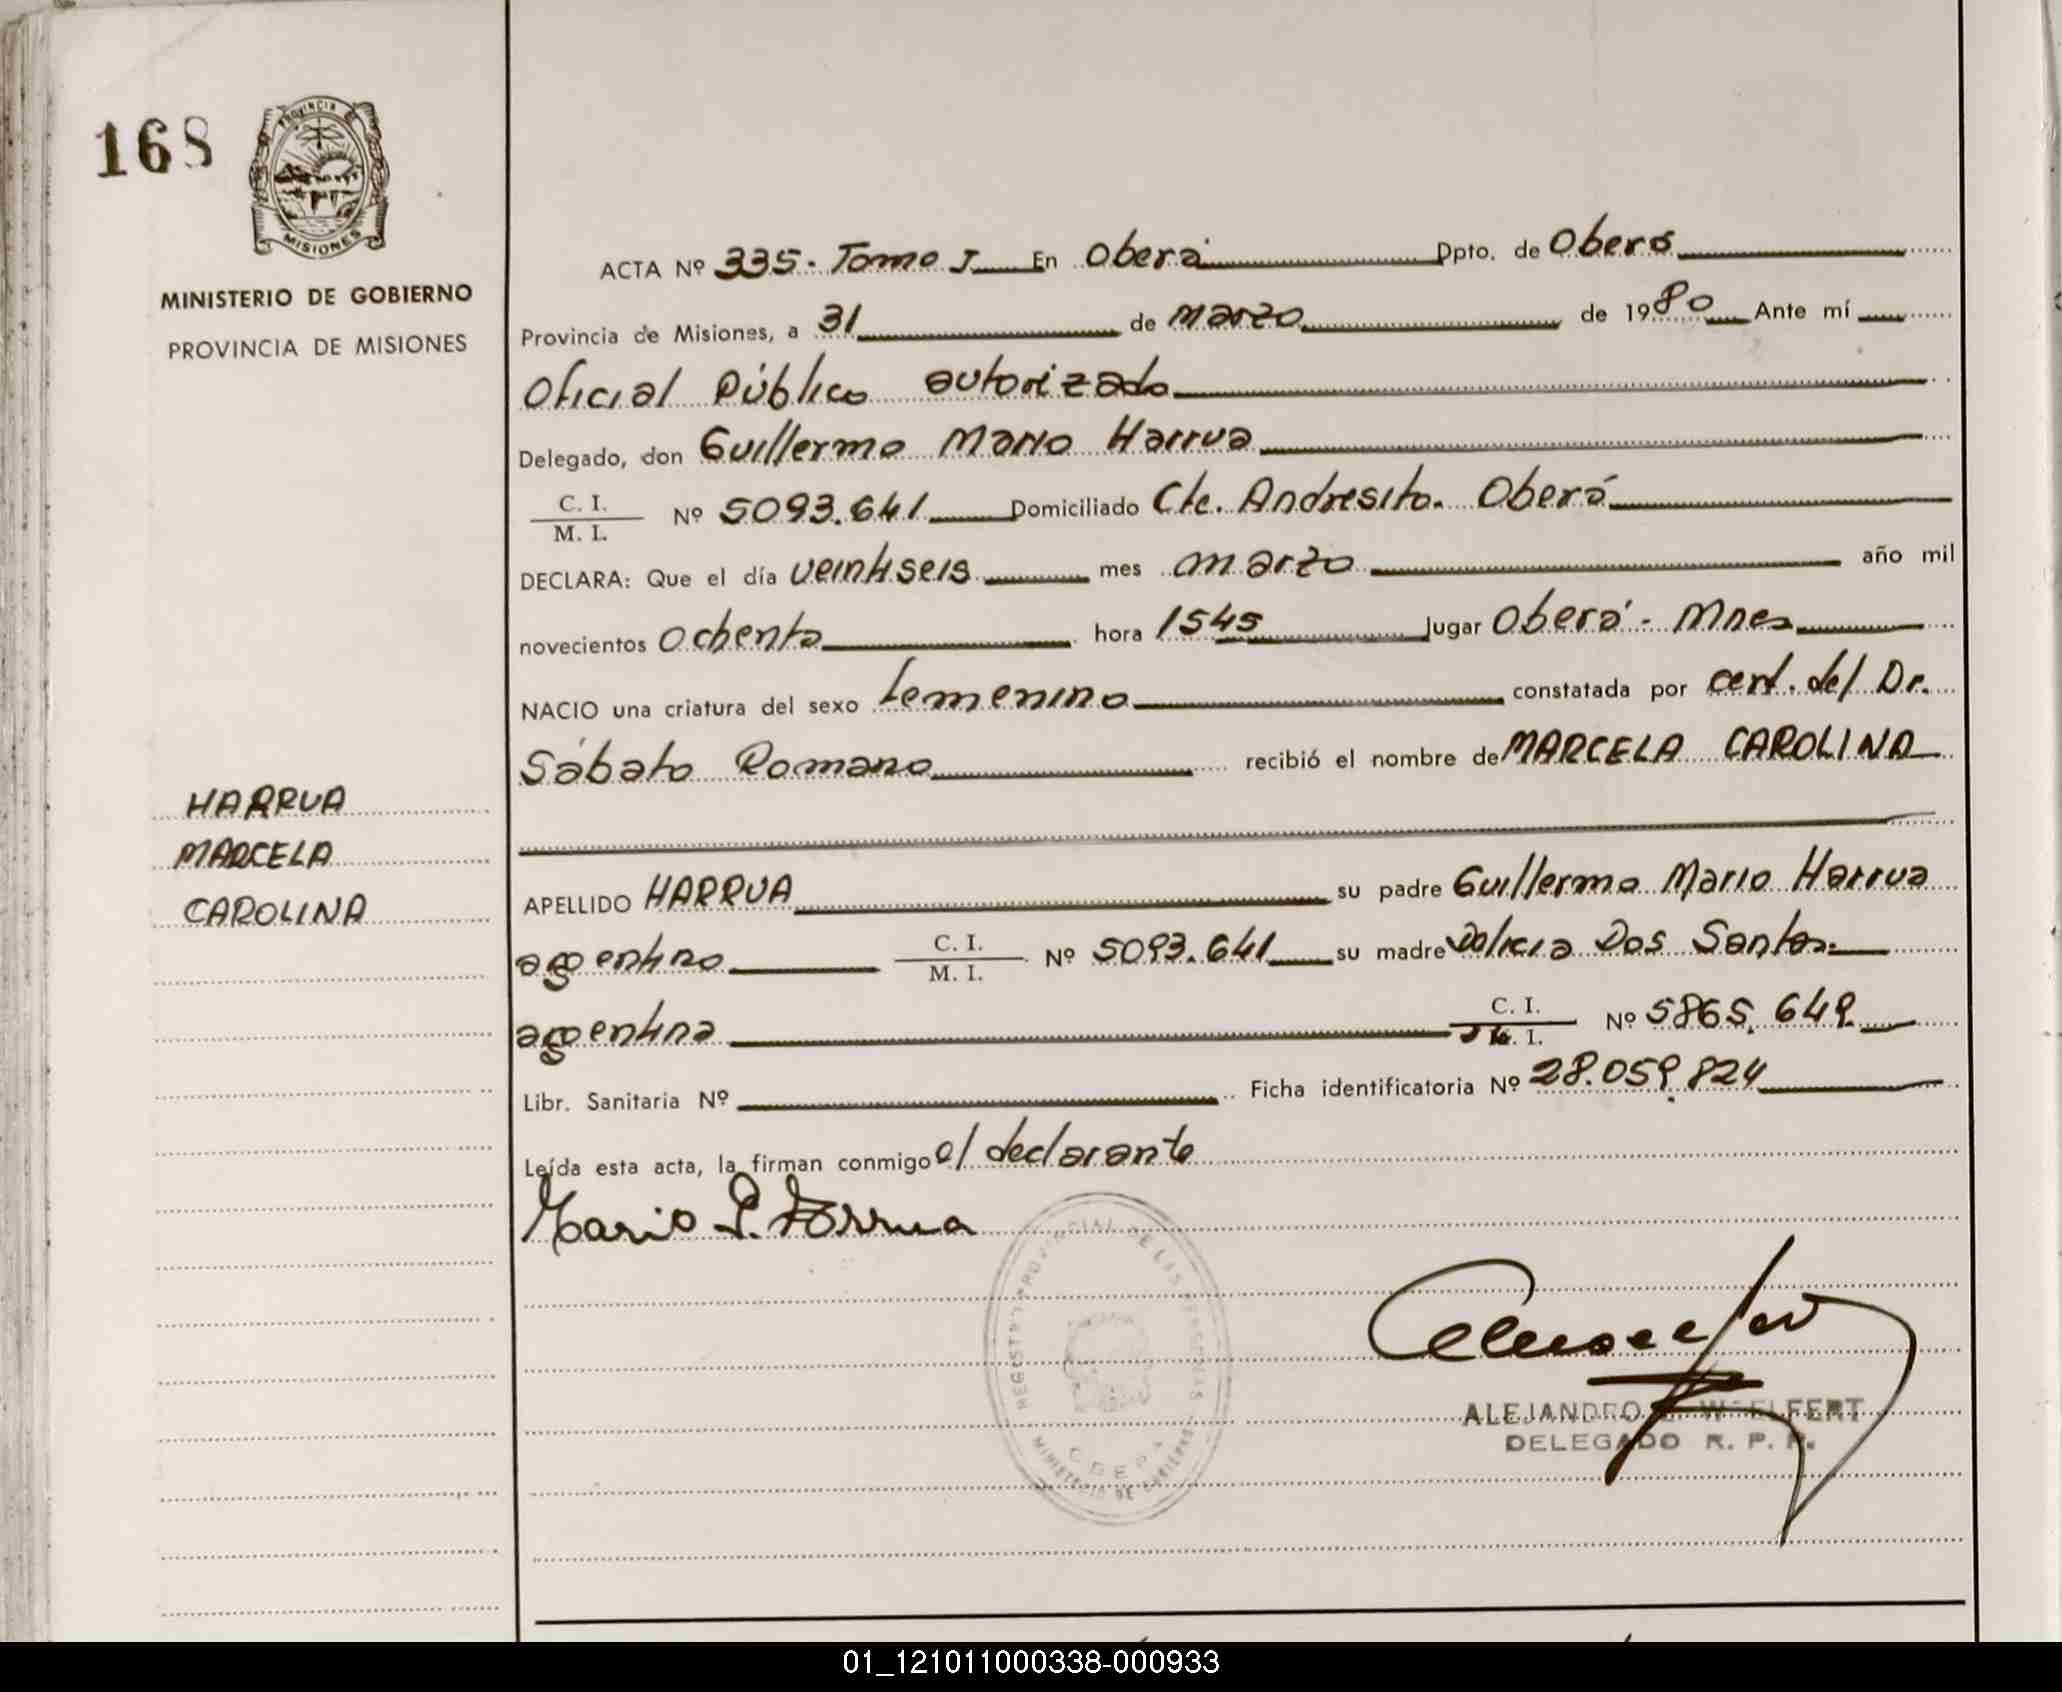 168
PROVINCIA DE
MISIONES
MINISTERIO DE GOBIERNO
PROVINCIA DE MISIONES
HARRUA
MARCELA
CAROLINA
ACTA Nº 335. Tomo I En Oberá Dpto. de Oberá
Provincia de Misiones, a 31 de marzo de 1980 Ante mí
Oficial Público autorizado
Delegado, don Guillermo Mario Harrua
C. I.
M. I. Nº 5093.641 Domiciliado Cte. Andresito. Oberá
DECLARA: Que el día veintiseis mes marzo año mil
novecientos ochenta hora 1545 lugar Oberá - Mnes
NACIO una criatura del sexo femenino constatada por cert. del Dr.
Sábato Romano recibió el nombre de MARCELA CAROLINA
APELLIDO HARRUA su padre Guillermo Mario Harrua
argentino C. I. M. I. Nº 5093.641 su madre Dolicia Dos Santos.
argentina C. I. M. I. Nº 5865.649
Libr. Sanitaria Nº Ficha identificatoria Nº 28.059.824
Leída esta acta, la firman conmigo el declarante
Mario G. Harrua
REGISTRO PROVINCIAL DE LAS PERSONAS
OBERA
MINISTERIO DE GOBIERNO
ALEJANDRO WOELFERT
DELEGADO R. P. P.
01_121011000338-000933